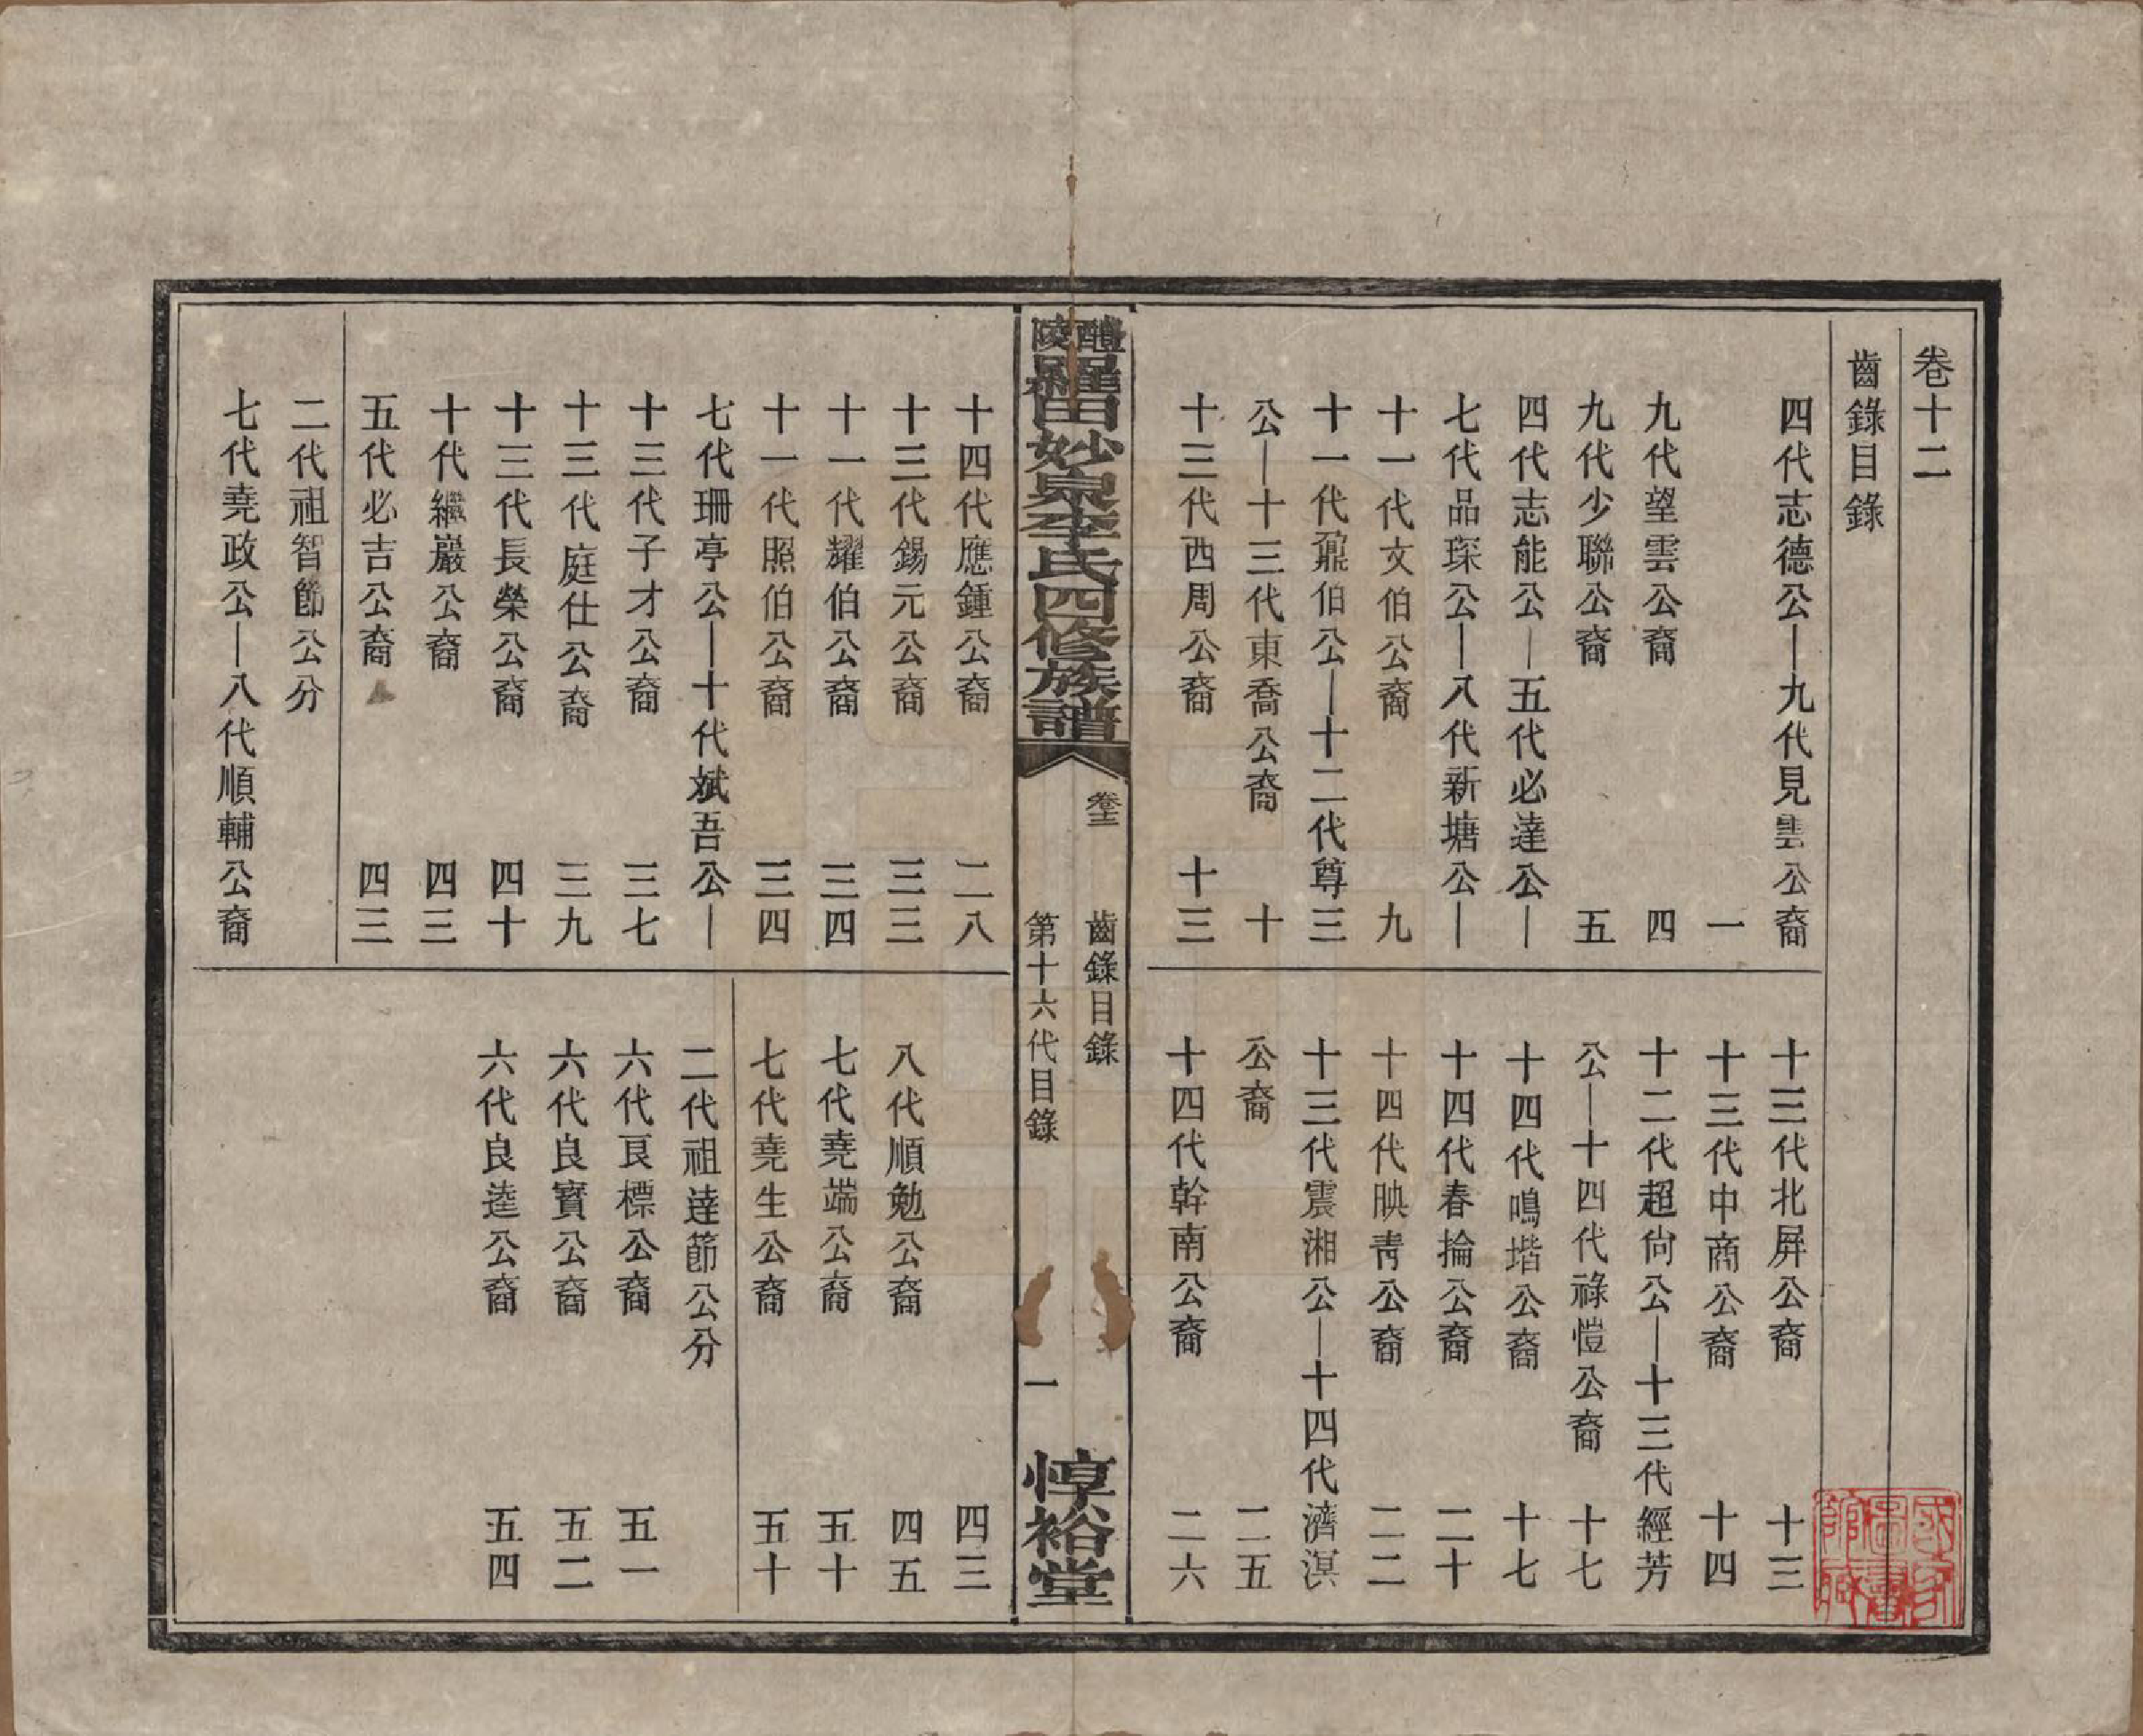 卷十二
齒錄目錄
四代志德公—九代見雲公裔
一
九代望雲公裔 四
九代少聯公裔 五
四代志能公—五代必達公—
七代品琛公—八代新塘公—
十一代文伯公裔 九
十一代鼐伯公—十二代尊三
公—十三代東喬公裔 十
十三代西周公裔 十三
十三代北屏公裔 十三
十三代中商公裔 十四
十二代超尙公—十三代經芳
公—十四代祿愷公裔 十七
十四代鳴堦公裔 十七
十四代春掄公裔 二十
十四代映靑公裔 二二
十三代震湘公—十四代濟溟
公裔 二五
十四代幹南公裔 二六
醴陵羅田妙泉李氏四修族譜
卷十二
齒錄目錄
第十六代目錄
一
惇裕堂
十四代應鍾公裔 二八
十三代錫元公裔 三三
十一代耀伯公裔 三四
十一代照伯公裔 三四
七代珊亭公—十代斌吾公—
十三代子才公裔 三七
十三代庭仕公裔 三九
十三代長榮公裔 四十
十代繼巖公裔 四三
五代必吉公裔 四三
二代祖智節公分
七代堯政公—八代順輔公裔
四三
八代順勉公裔 四五
七代堯端公裔 五十
七代堯生公裔 五十
二代祖達節公分
六代良標公裔 五一
六代良寶公裔 五二
六代良逵公裔 五四
國家圖書館藏